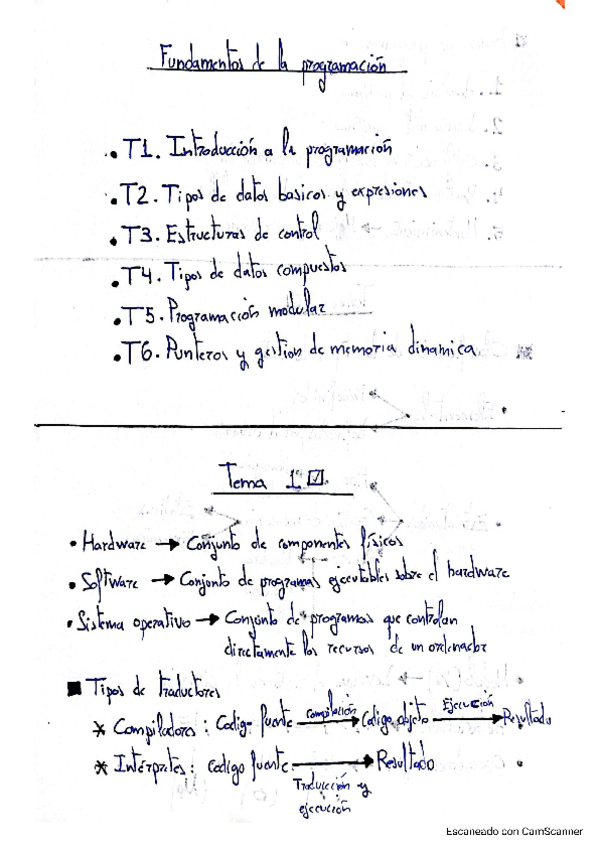 Fundamentos de la programación
• T1. Introducción a la programación
• T2. Tipos de datos basicos y expresiones
• T3. Estructuras de control
• T4. Tipos de datos compuestos
• T5. Programación modular
• T6. Punteros y gestion de memoria dinamica
Tema 1 ☑.
• Hardware → Conjunto de componentes físicos
• Software → Conjunto de programas ejecutables sobre el hardware
• Sistema operativo → Conjunto de programas que controlan
directamente los recursos de un ordenador
■ Tipos de traductores
* Compiladores : Codigo fuente compilación → Codigo objeto Ejecución → Resultado
* Intérpretes : Codigo fuente → Resultado
Traducción y
ejecución
Escaneado con CamScanner